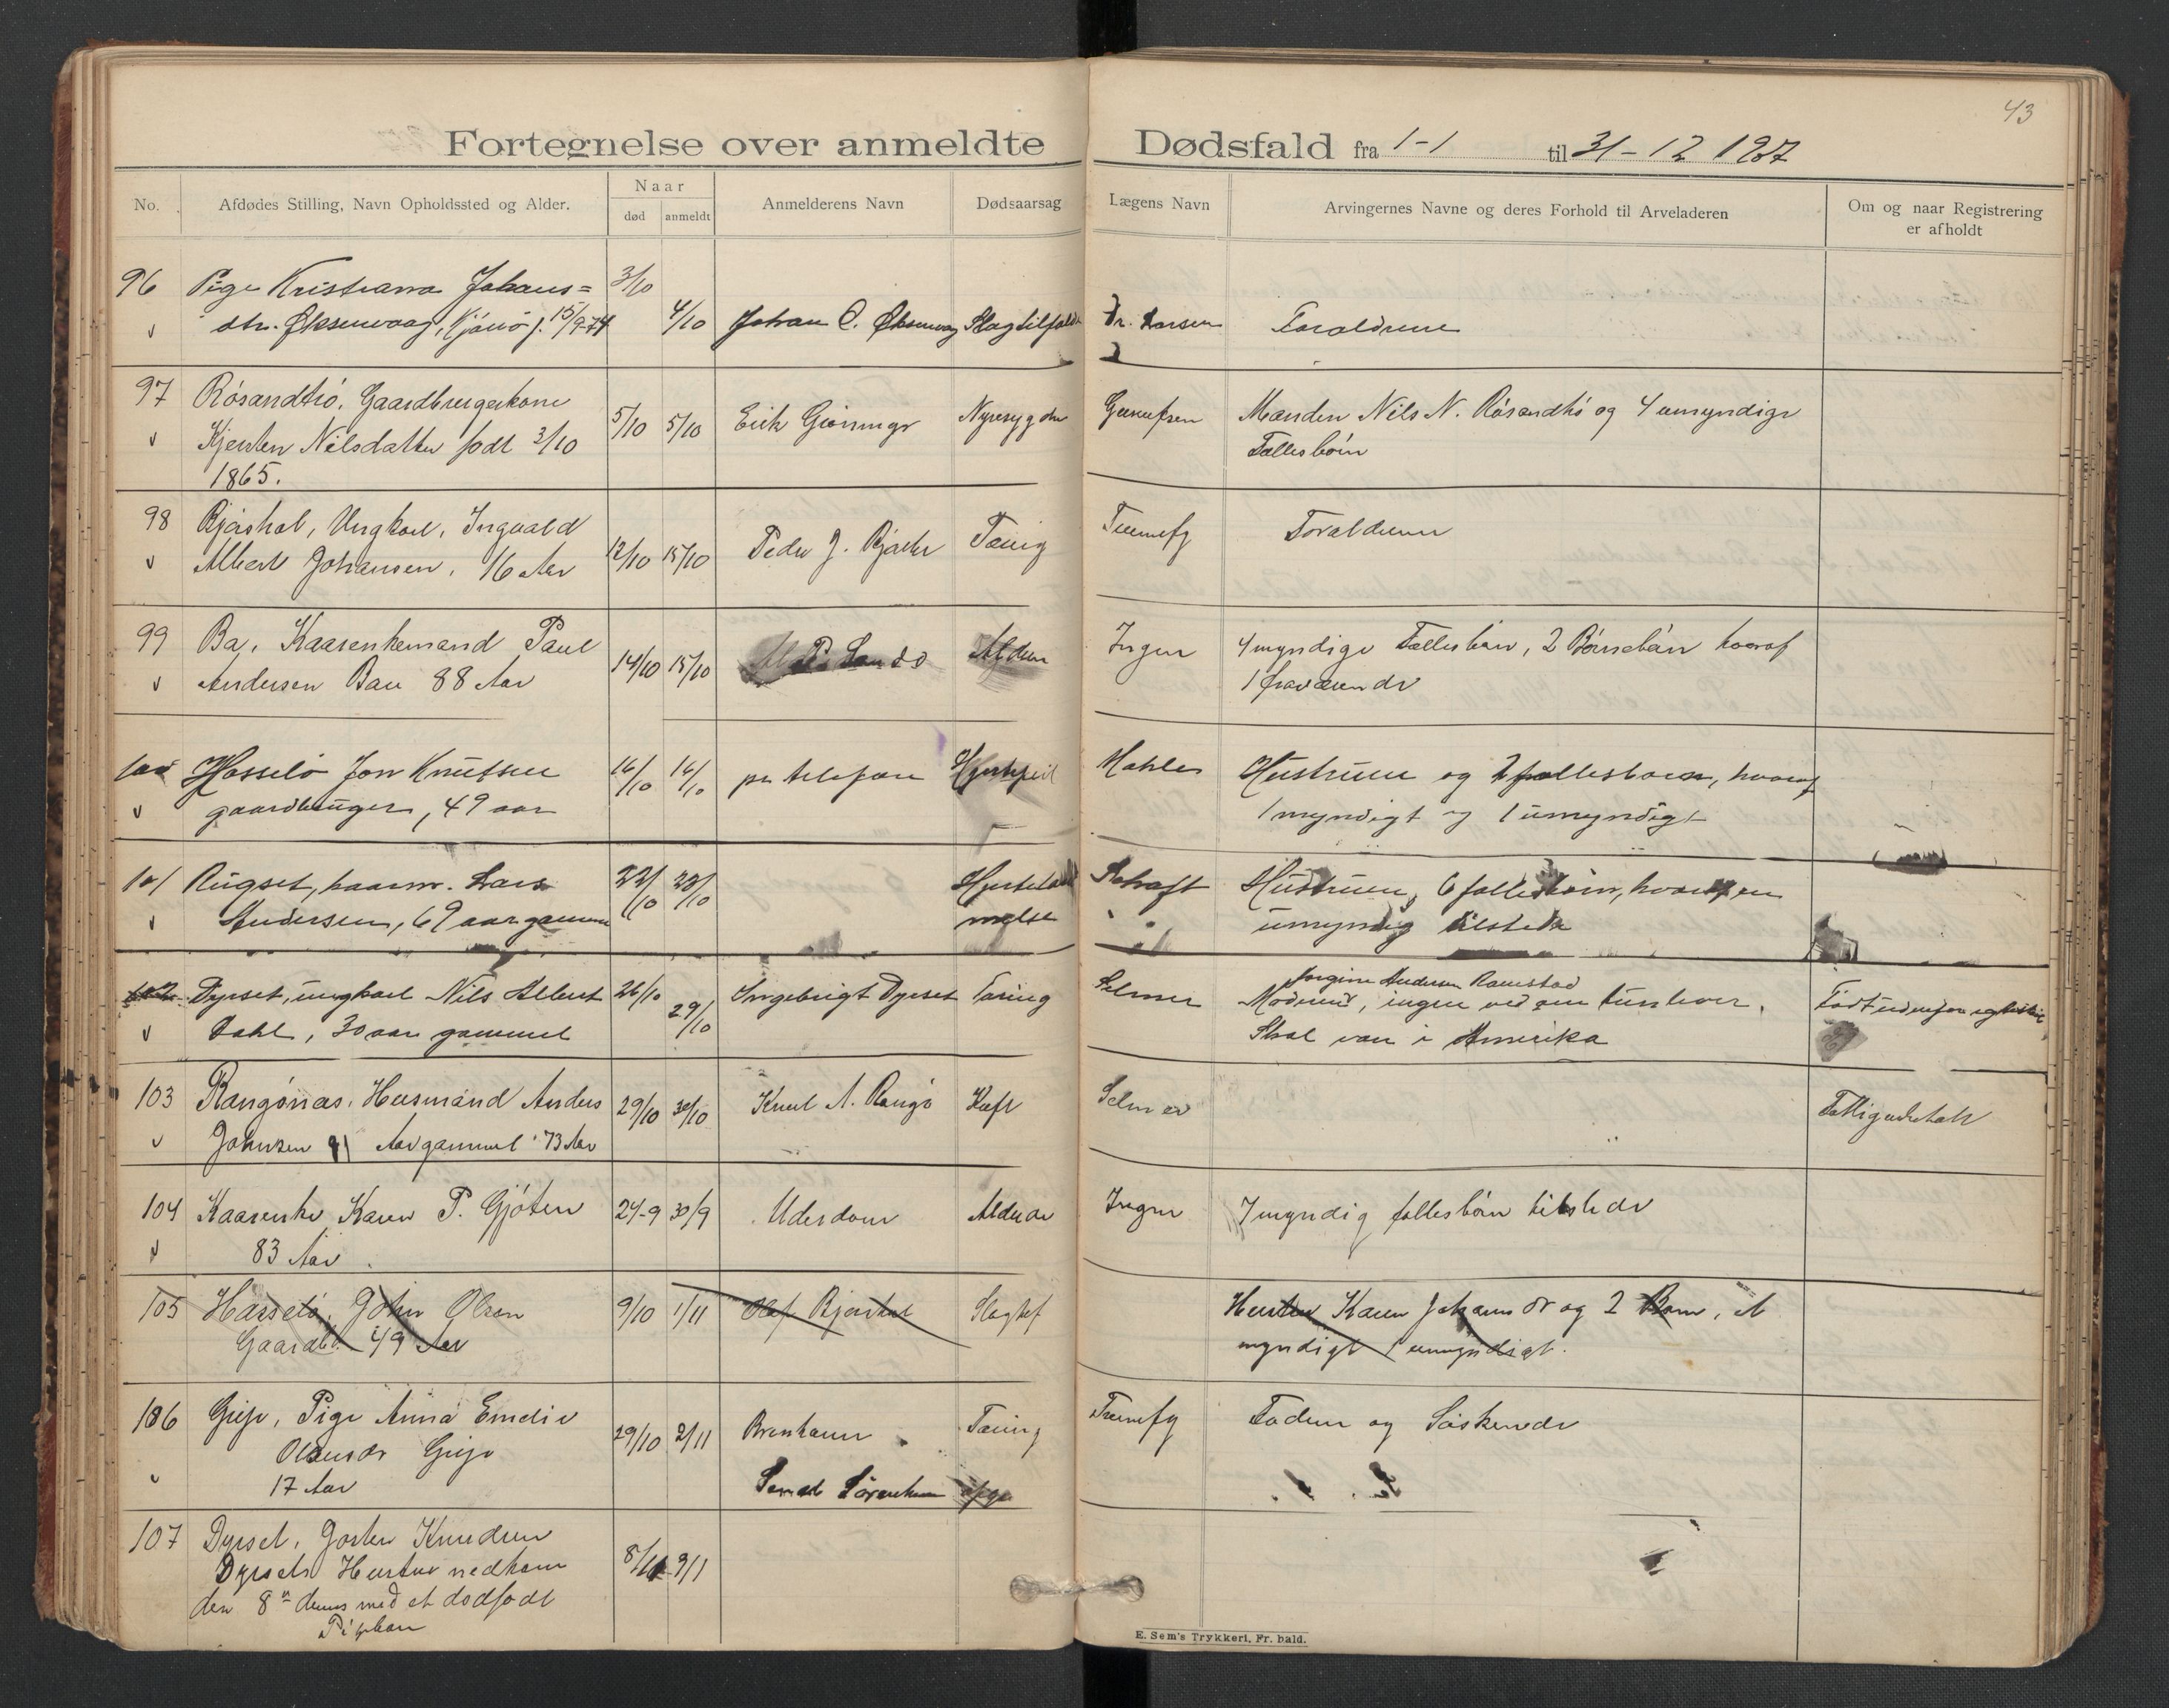 43
Fortegnelse over anmeldte Dødsfald fra 1-1 til 31-12 1907
No.
Afdødes Stilling, Navn Opholdssted og Alder.
Naar
død
anmeldt
Anmelderens Navn
Dødsaarsag
Lægens Navn
Arvingernes Navne og deres Forhold til Arveladeren
Om og naar Registrering
er afholdt
96 Pige Kristianna Johans= 3/10
dtr. Øksenvaag, f. 15/9-74 4/10 Johan O. Øksenvag Slagtilfælde Dr. Larsen Forældrene
97 Røsandhø, Gaardbrugerkone
Kjersten Nilsdatter født 3/10 5/10 5/10 Erik Nyresygdom Manden Nils N. Røsandhø og 4 umyndige
1865. Fællesbørn
98 Ungkarl, Ingvald
Albert Johansen, 16 Aar 12/10 15/10 Peder J. Tæring Forældrene
99 Ba, Kaarenkemand Paul
Andersen Bae 88 Aar 14/10 15/10 Alder Ingen 4 myndige Fællesbørn, 2 Børnebørn hvoraf
1 fraværende
100 Hasselø Jon Knutsen 16/10 16/10 pr telefon Hjertefeil Mohle Hustruen og 2 fællesbørn, hvoraf
gaardbruger, 49 aar 1 myndigt og 1 umyndigt
101 Rugset, kaarm. Lars 22/10 23/10 Schaft Hustruen, 6 fællesbørn, hvoraf en
Andersen, 69 aar gammel umyndig tilstede
102 Dyrset, ungkarl Nils Albert 26/10 29/10 Ingebrigt Dyrset Tæring Selmer
Dahl, 30 aar gammel Moderen, ingen ved om hun lever.
Skal være i Amerika
103 Rangønæs, Husmand Anders 29/10 30/10 Knut A. Rangø Kræft Selmer Fattigunderstøtt
Johnsen Aar gammel 73 Aar
104 Kaarenke Karen P. Gjøten 24-9 30/9 Alderdom Ingen 7 myndig fællesbørn tilstede
83 Aar
105 Hasselø, John Olsen 9/10 1/11 Olaf Slagtilf Hustru Karen Johannsdr og 2 Børn, et
Gaardb. 49 Aar myndigt 1 umyndigt.
106 Grip, Pige Anna Emelie
Olausdr Grip 29/10 2/11 Tæring Faderen og Søskende
17 Aar
107 Dyrset, Knudsen
Dyrsets Hustru nedkom 8/11 9/1
den 8n dennes med et dødfødt
Pigebarn
E. Sem's Trykkeri, Fr. hald.